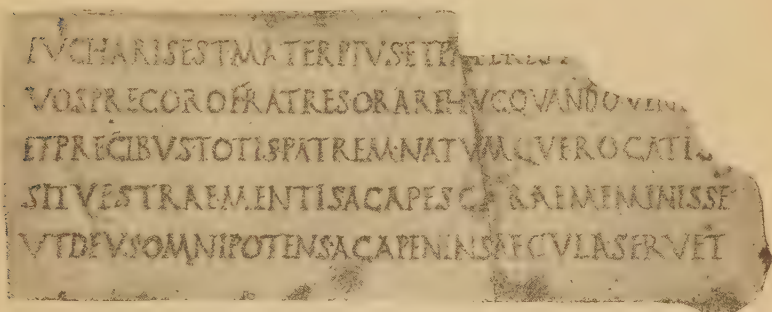 EVCHARISESTMATERPIVSETPATEREST
VOSPRECOROFRATRESORAREHVCQVANDOVENI
ETPRECIBVSTOTISPATREMNATVMQVEROGATIS
SITVESTRAEMENTISAGAPESCARAEMEMINISSE
VTDEVSOMNIPOTENSAGAPENINSAECVLASERVET